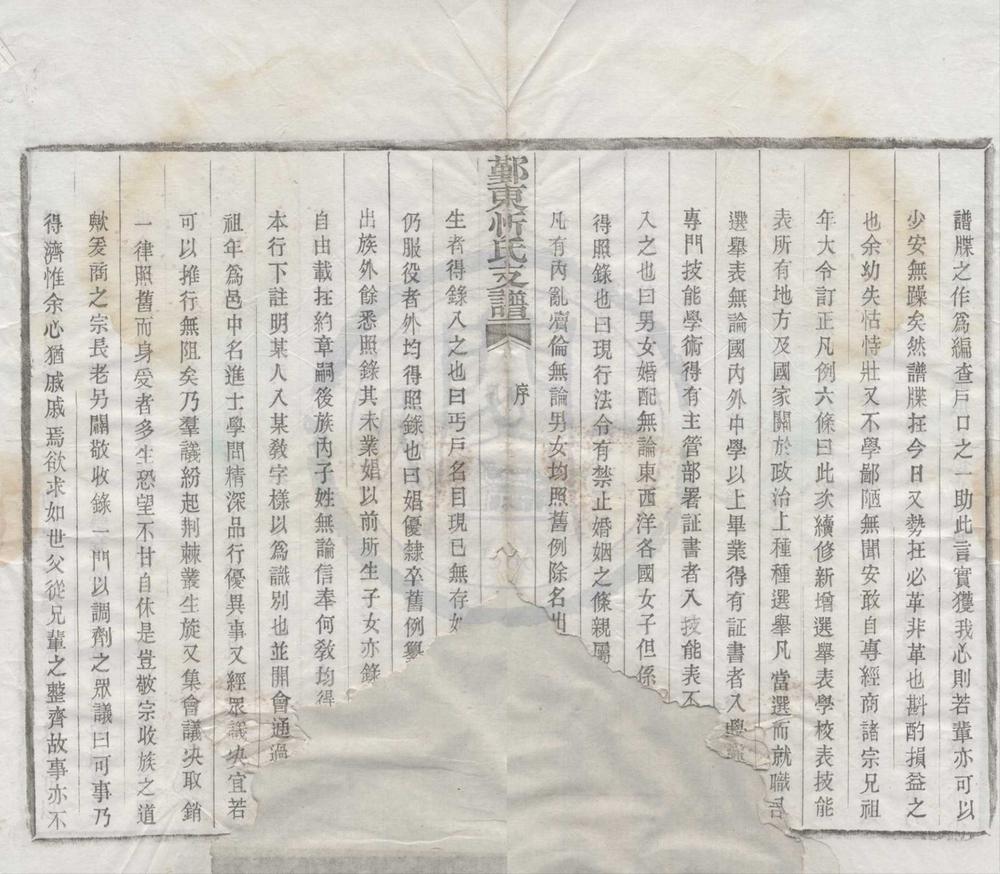 譜牒之作爲編查戶口之一助此言實獲我心則若輩亦可以
少安無躁矣然譜牒在今日又勢在必革非革也斟酌損益之
也余幼失怙恃壯又不學鄙陋無聞安敢自專經商諸宗兄祖
年大令訂正凡例六條曰此次續修新增選舉表學校表技能
表所有地方及國家關於政治上種種選舉凡當選而就職
選舉表無論國內外中學以上畢業得有証書者入
專門技能學術得有主管部署証書者入技能表不
入之也曰男女婚配無論東西洋各國女子但係
得照錄也曰現行法令有禁止婚姻之條親屬
凡有內亂瀆倫無論男女均照舊例除名出
鄞東忻氏支譜
序
生者得錄入之也曰丐戶名目現已無存如
仍服役者外均得照錄也曰娼優隸卒舊例
出族外餘悉照錄其未業娼以前所生子女亦錄
自由載在約章嗣後族內子姓無論信奉何敎均得
本行下註明某人入某敎字樣以爲識別也並開會通過
祖年爲邑中名進士學問精深品行優異事又經眾議決宜若
可以推行無阻矣乃羣議紛起荆棘叢生旋又集會議決取銷
一律照舊而身受者多生恐望不甘自休是豈敬宗收族之道
歟爰商之宗長老另闢敬收錄一門以調劑之眾議曰可事乃
得濟惟余心猶戚戚焉欲求如世父從兄輩之整齊故事亦不